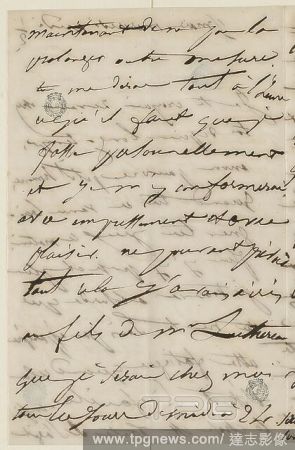 maintenant de ne pas la
prolonger outre mesure.
tu me diras tout à l'heure
ce qu'il faut que je
fasse personnellement
et je m'y conformerai
avec empressement et avec
plaisir. ne pouvant
tout cela j'avais
au fils de Mr
que je serai chez moi
tous les jours de midi à 2 h
TPG
www.tpgnews.com/達志影像